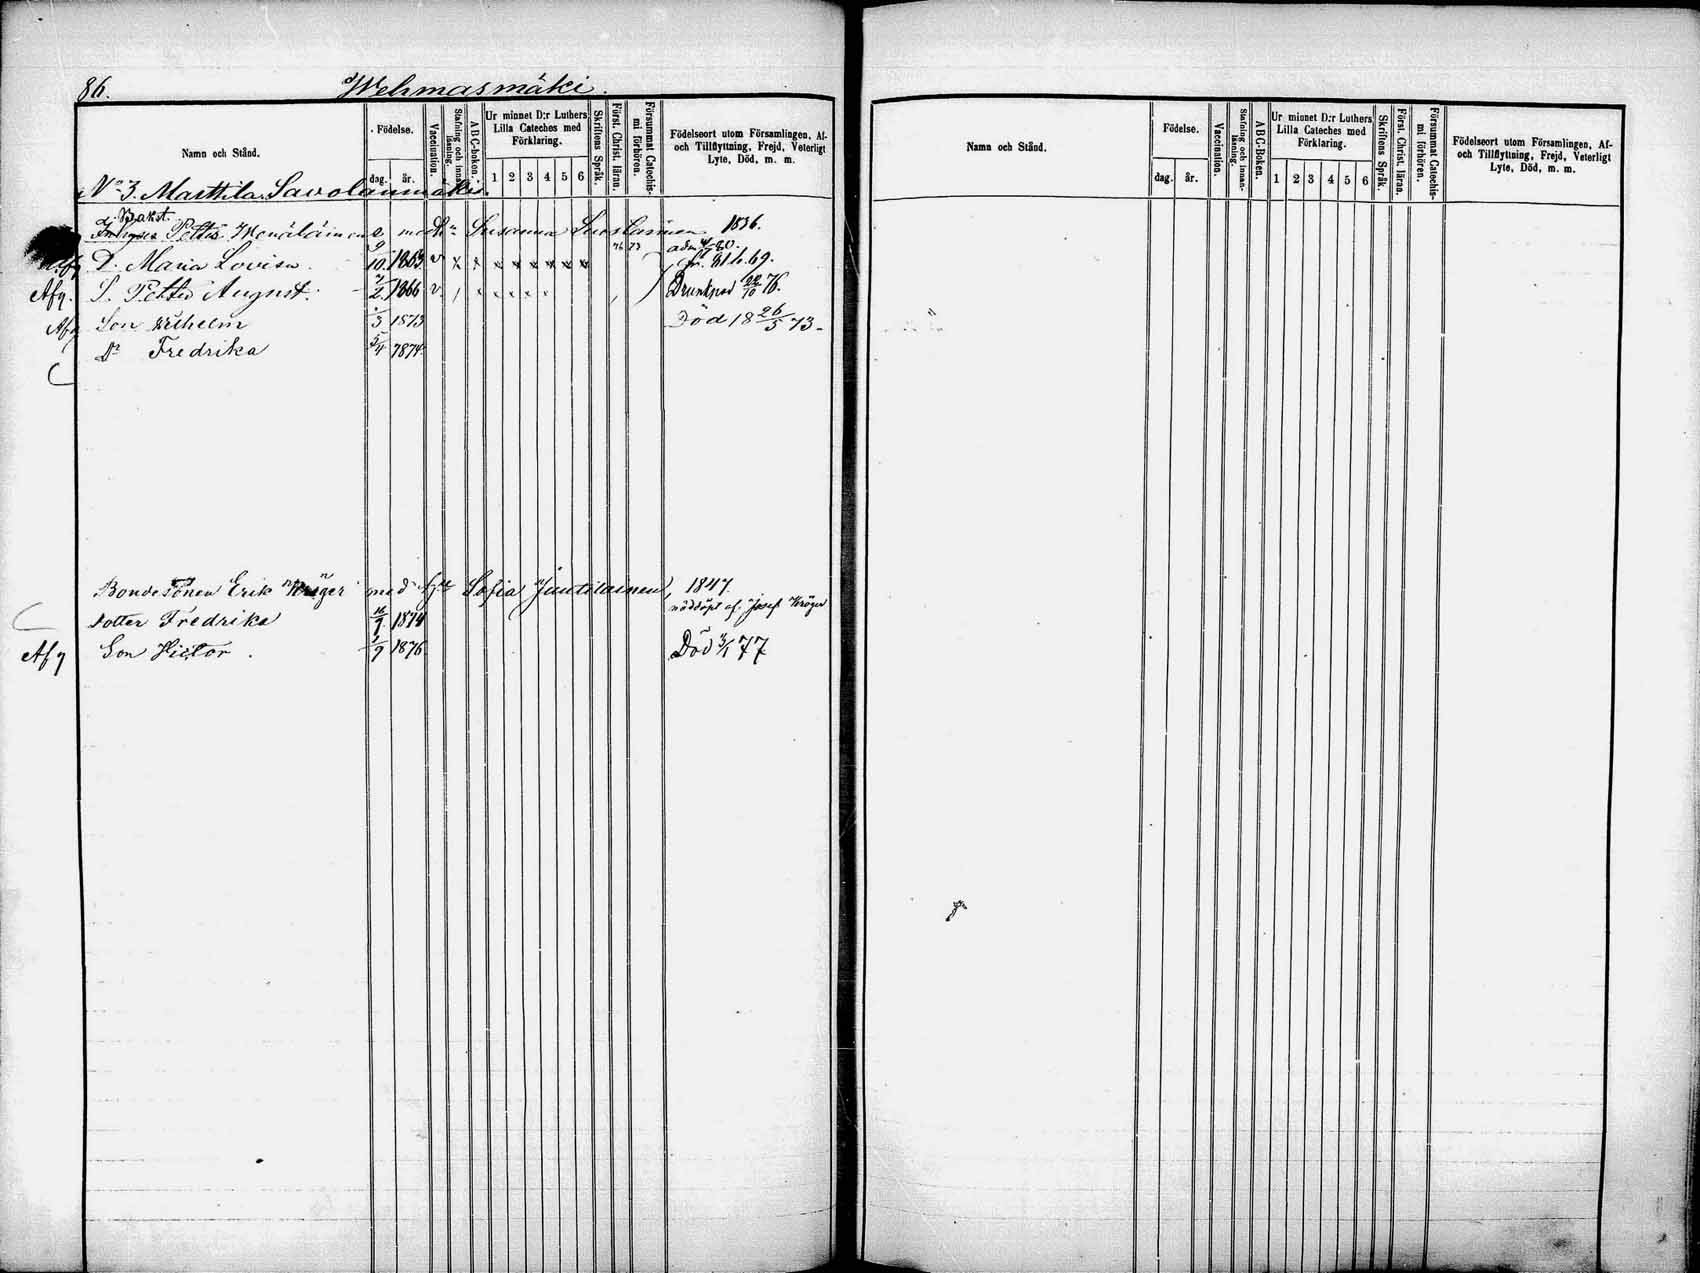 86.
Wehmasmäki.
Namn och Stånd.
Födelse.
dag.
år.
Vaccination.
Stafning och innan-läsning.
A B C-boken.
Ur minnet D:r Luthers
Lilla Cateches med
Förklaring.
1 2 3 4 5 6
Skriftens Språk.
Först. Christ. läran.
Försummat Catechis-
mi förhören.
Födelseort utom Församlingen, Af-
och Tillflyttning, Frejd, Veterligt
Lyte, Död, m. m.
No 3. Marttila Savolanmäki.
Petter med Susanna 1836.
Afg D. Maria Lovisa 10. 1863 v x x x x x x x x 76 73
Afg. S. Petter August. 2 1866 v. Drunknad 22/10 76.
Afg Son Wilhelm 3 1873 Död 18 26/5 73.
Dr Fredrika 5/4 1874.
Bondesonen Erik Kröger med Sofia Juutilainen, 1847.
nöddöpt af. Josef Kröger
Dotter Fredrika 1874
Afg Son Victor. 1/9 1876. Död 3/1 77
Namn och Stånd.
Födelse.
dag.
år.
Vaccination.
Stafning och innan-läsning.
A B C-Boken.
Ur minnet D:r Luthers
Lilla Cateches med
Förklaring.
1 2 3 4 5 6
Skriftens Språk.
Först. Christ. läran.
Försummat Catechis-
mi förhören.
Födelseort utom Församlingen, Af-
och Tillflyttning, Frejd, Veterligt
Lyte, Död, m. m.